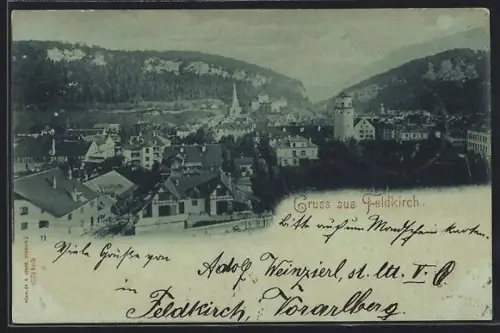 Gruss aus Feldkirch.
Bitte auch um Mondschein karten.
Viele Grüsse von
Adolf Weinzierl, st. litt. V. C.
in
Feldkirch, Vorarlberg